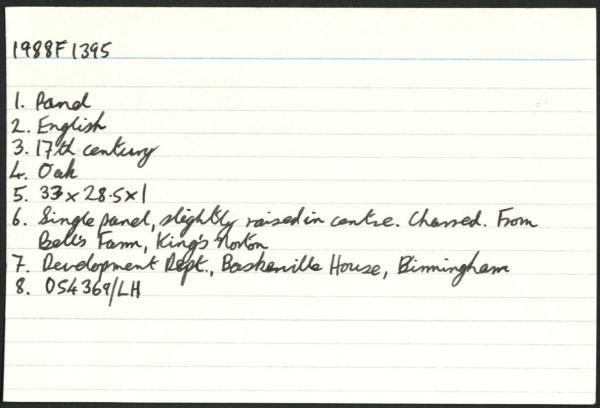 1988F1395
1. Panel
2. English
3. 17th century
4. Oak
5. 33 x 28.5 x 1
6. Single panel, slightly raised in centre. Charred. From
Bells Farm, King's Norton
7. Development Dept., Baskerville House, Birmingham
8. 054369/LH